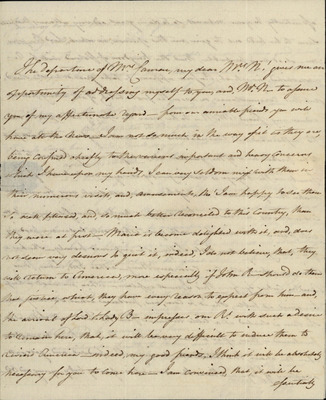 The departure of Mrs. Cawen, my dear Mrs. N! gives me an
opportunity of addressing myself to you, and Mr. N. to assure
you, of my affectionate regard — from our amiable friends you will
hear all the News — I am not so much in the way of it as they are,
being confined chiefly to the various important and heavy Concerns,
which I have upon my hands. I am very seldom mix'd with them in
their numerous visits and, amusements, tho I am happy to see them
so well pleased, and so much better reconciled to this Country, than
they were at first — Maria is become delighted with it, and, does
not seem very desirous to quit it, indeed, I do not believe, that, they
will return to America, more especially if John R— should do them
that justice, which, they have every reason to expect from him — and,
the arrival of Lord & Lady B— impresses on R! with such a desire
to remain here, that, it will be very difficult to induce them to
revisit America — indeed, my good friends, I think it will be absolutely
necessary for you to come here — I am convinced, that, it will be
essentially